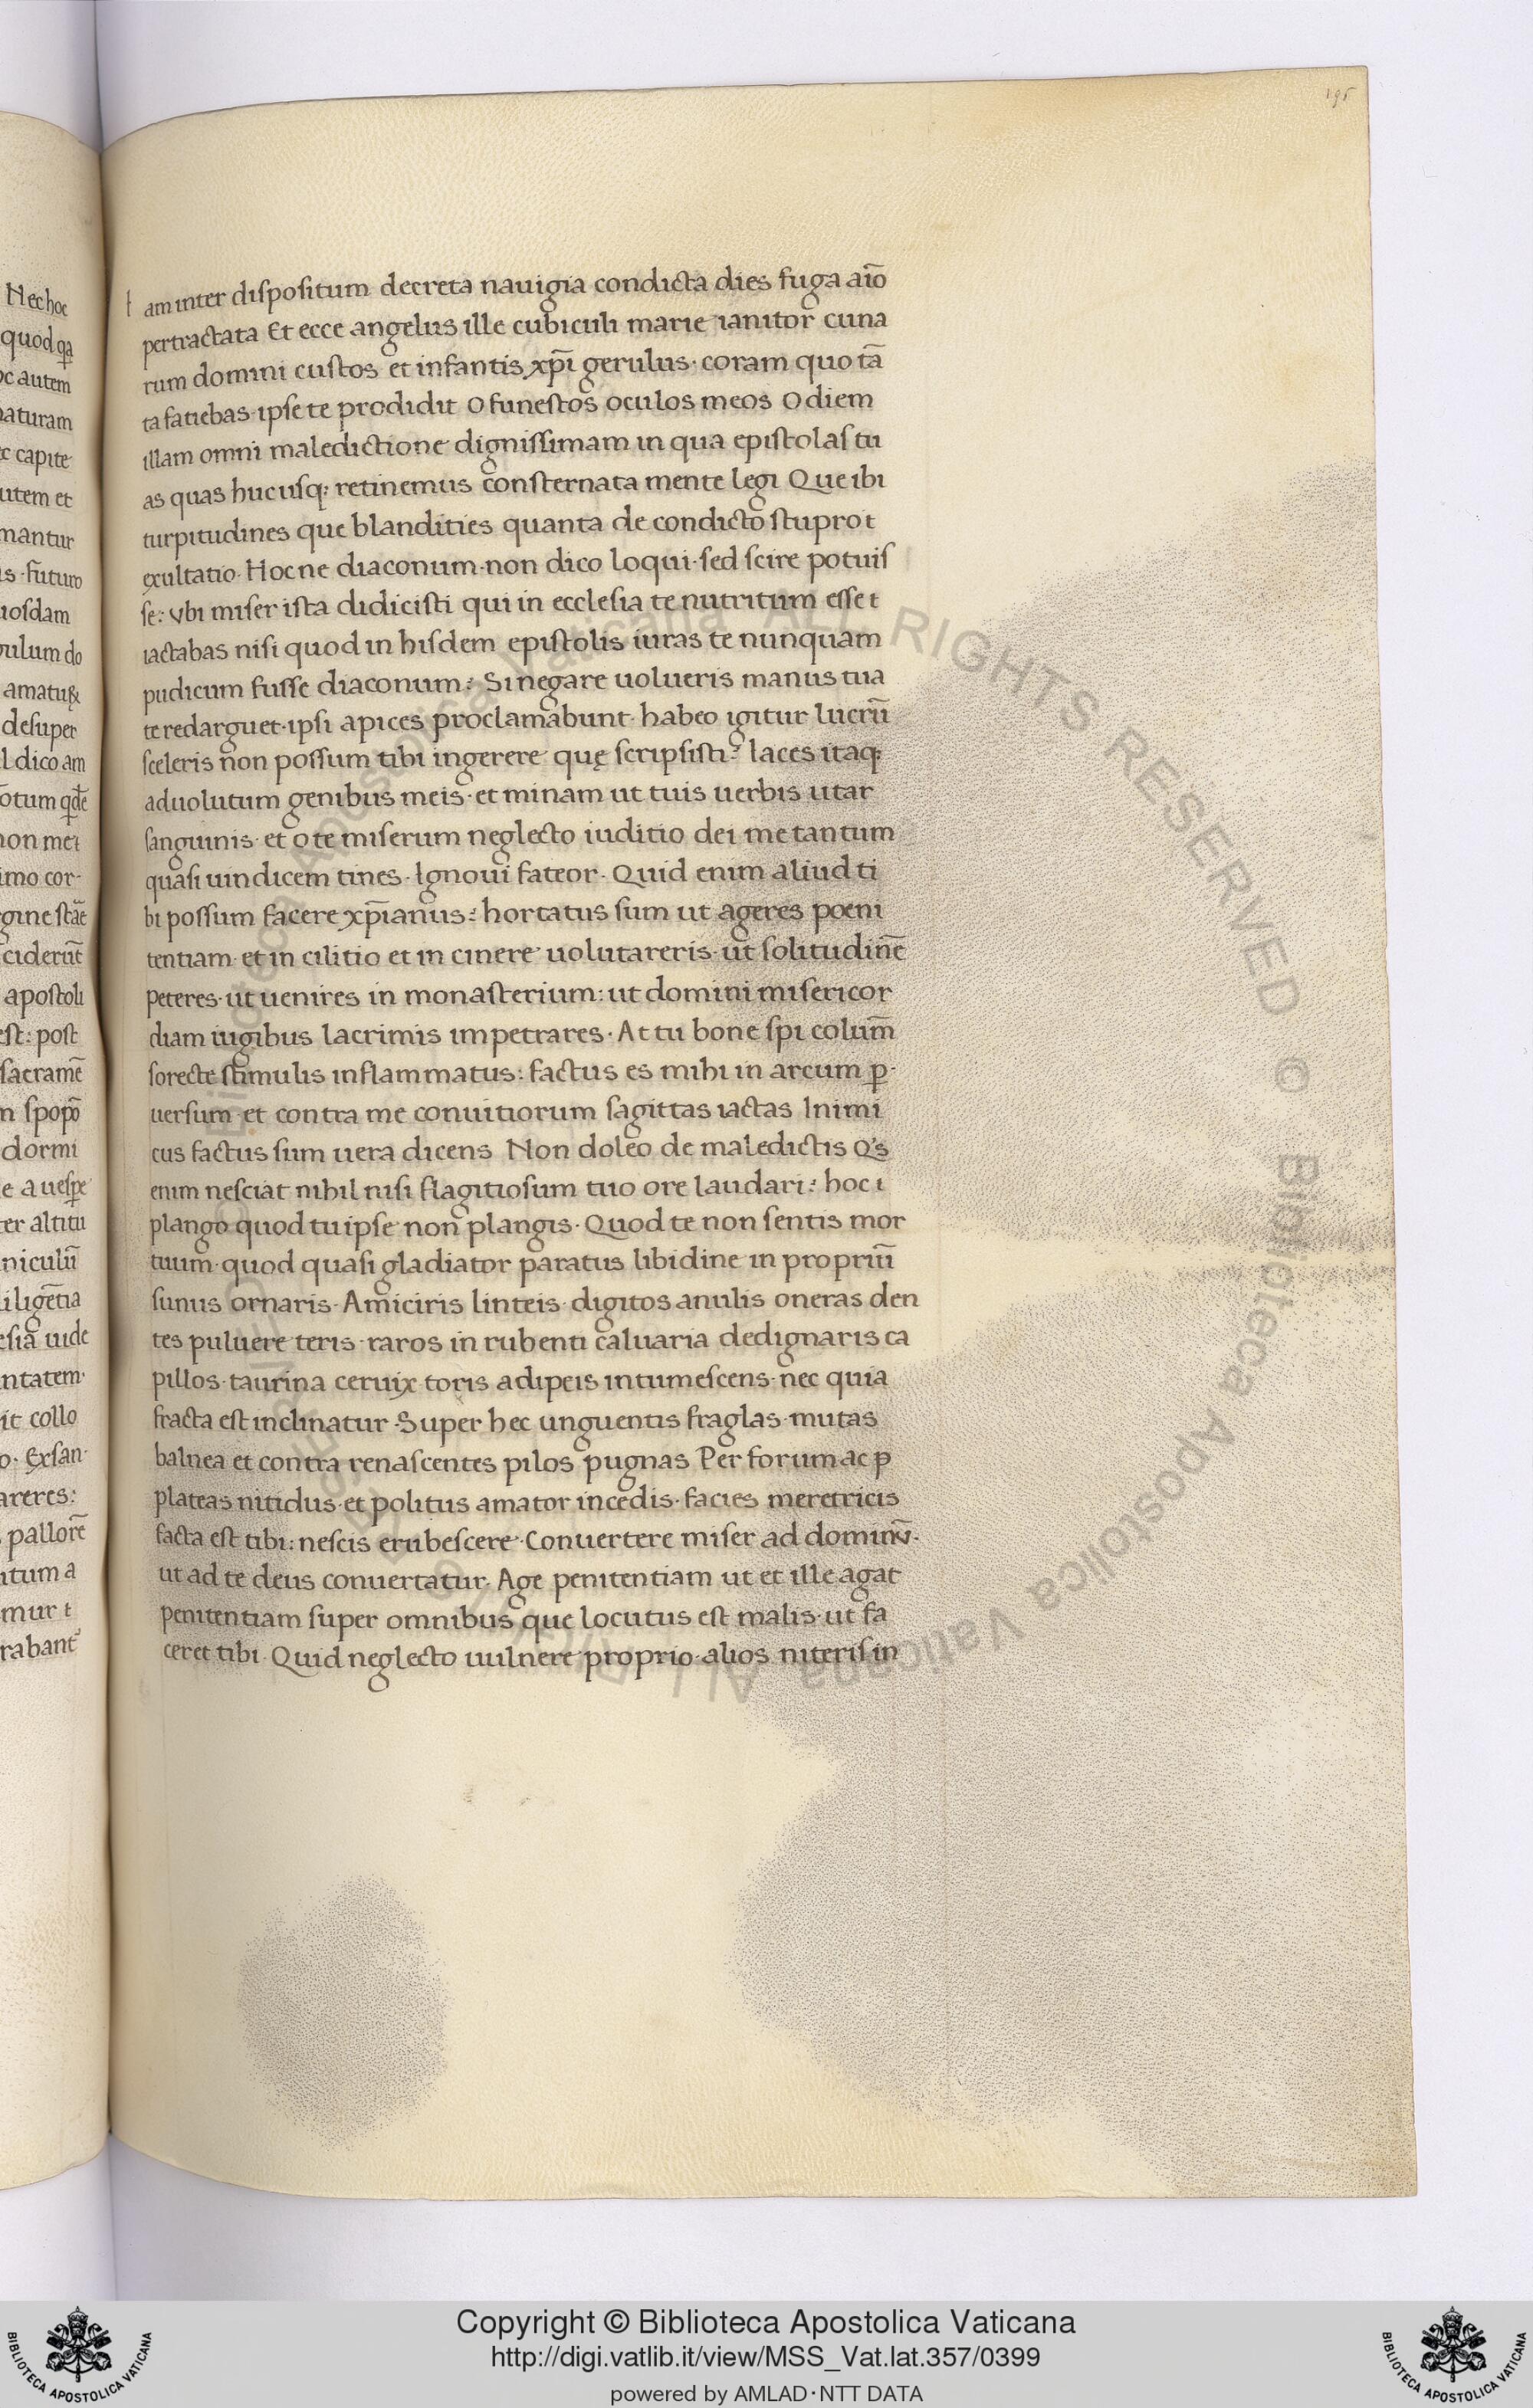 195
Nec hoc
quod q̄a
oc autem
naturam
ec capite
utem et
mantur
is · futuro
uosdam
culum do
amatuꝝ
desuper
l dico am
otum q̄dē
non mei
imo cor-
gine stāē
ciderūt
apostoli
est: post
sacramē
n spopō
dormi
e a uesꝑe
ter altitu
niculū
iligētia
esia uide
ntatem·
it collo
o· Exsan·
areres:
pallorē
itum a
mur t
rabant᷒
t am inter dispositum decreta nauigia condicta dies fuga aīo
pertractata Et ecce angelus ille cubiculi marie ianitor cuna
rum domini custos et infantis xp̄i gerulus· coram quo tā
ta fatiebas· ipse te prodidit O funestos oculos meos O diem
illam omni maledictione dignissimam in qua epistolas tu
as quas hucusq; retinemus consternata mente legi Que ibi
turpitudines que blandities quanta de condicto stupro t
exultatio· Hocne diaconum· non dico loqui· sed scire potuis
se: vbi miser ista didicisti qui in ecclesia te nutritum esse t
iactabas nisi quod in hisdem epistolis iuras te nunquam
pudicum fusse diaconum: Si negare uolueris manus tua
te redarguet· ipsi apices proclamabunt· habeo igitur lucrū
sceleris non possum tibi ingerere quę scripsisti: Iaces itaq;
aduolutum genibus meis· et minam ut tuis uerbis utar
sanguinis· et o te miserum neglecto iuditio dei me tantum
quasi uindicem times· Ignoui fateor· Quid enim aliud ti
bi possum facere xp̄ianus: hortatus sum ut ageres poeni
tentiam· et in cilitio et in cinere uolutareris· ut solitudinē
peteres· ut uenires in monasterium: ut domini misericor
diam iugibus lacrimis impetrares· At tu bone spi colum̄
sorecte stimulis inflammatus: factus es mihi in arcum ꝑ·
uersum· et contra me conuitiorum sagittas iactas Inimi
cus factus sum uera dicens Non doleo de maledictis Q's
enim nesciat nihil nisi flagitiosum tuo ore laudari: hoc t
plango quod tu ipse non plangis· Quod te non sentis mor
tuum· quod quasi gladiator paratus libidine in propriū
funus ornaris· Amiciris linteis· digitos anulis oneras den
tes puluere teris· raros in rubenti caluaria dedignaris ca
pillos· taurina ceruix toris adipeis intumescens· nec quia
fracta est inclinatur· Super hec unguentis fraglas· mutas
balnea et contra renascentes pilos pugnas Per forum ac ꝑ
plateas nitidus et politus amator incedis· facies meretricis
facta est tibi: nescis erubescere· Conuertere miser ad dominū·
ut ad te deus conuertatur· Age penitentiam ut et ille agat
penitentiam super omnibus que locutus est malis· ut fa
ceret tibi· Quid neglecto uulnere proprio· alios niteris in
Biblioteca Apostolica Vaticana ALL RIGHTS RESERVED © Biblioteca Apostolica Vaticana ALL RIGHTS RESERVED ©
Copyright © Biblioteca Apostolica Vaticana
http://digi.vatlib.it/view/MSS_Vat.lat.357/0399
powered by AMLAD·NTT DATA
BIBLIOTECA APOSTOLICA VATICANA
BIBLIOTECA APOSTOLICA VATICANA